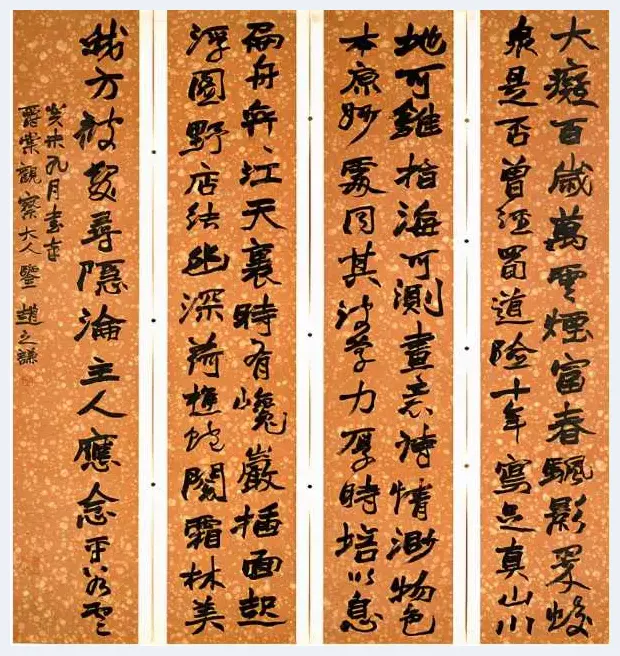 大癡百歲萬雲煙富春飄影蛟
泉是否曾經蜀道險十年寫足真山川
地可雖指海可測畫意詩情渺物色
本原妙處同其詩學力厚時培以息
扁舟奔〻江天裏時有巉巖插面起
浮圖野店結幽深荷樵蛇關霜林美
我方被髮尋隱淪主人應念平
癸未九月書奉
爵棠觀察大人鑒 趙之謙